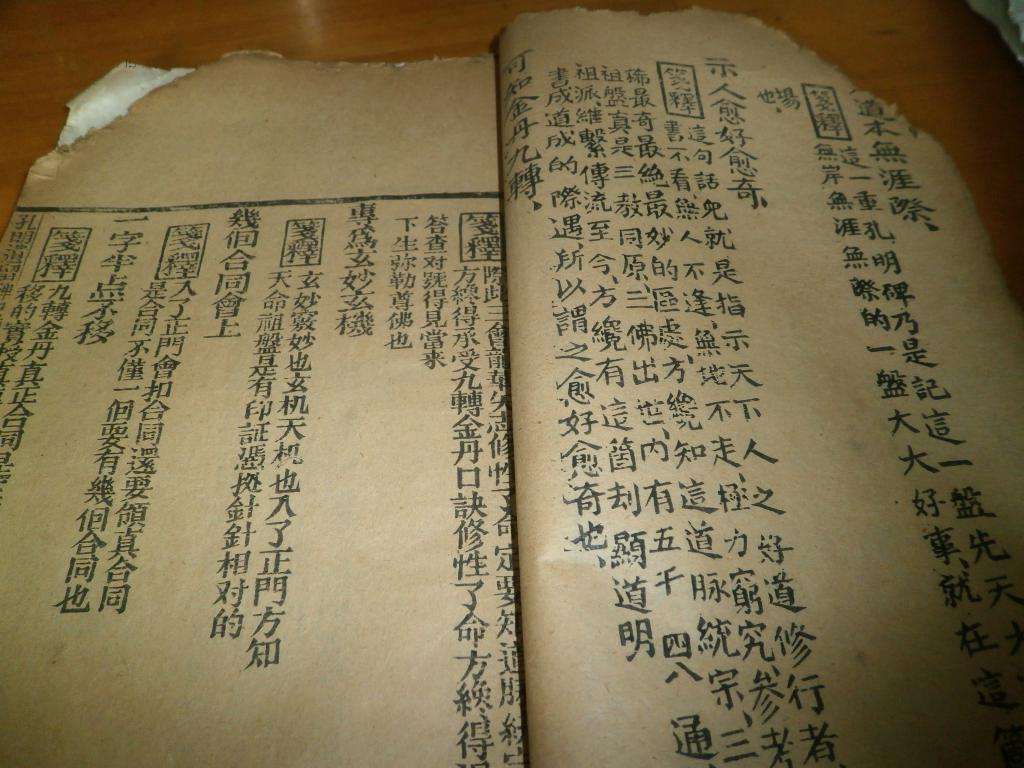 道本無涯際、
箋釋
這一重孔明碑乃是記這一盤先天大
無岸無涯無際的一盤大大好事、就在這箇
場也、
示人愈好愈奇、
箋釋
這句話兒就是指示天下人之好道修行者、
書不看無人不逢、無地不走、極力窮究、參考
稀最奇最絶最妙的區處、方纔知這道脉統宗、三
祖盤真是三教同原、三佛出世、内有五千四八
祖派、維繫傳流至今、方纔有這箇刦顯道明
書成道成的際遇、所以謂之愈好愈奇也、
可知金丹九轉、
箋釋
際此三會龍華失志修性了命定要知道脉統宗
方纔得承受九轉金丹口訣修性了命方纔、得
答查对號得見當來
下生弥勒尊佛也
專爲玄妙玄機
箋釋
玄妙竅妙也玄机天机也入了正門方知
天命祖盤是有印証憑㨿針針相对的
幾個合同會上
箋釋
入了正門會扣合同還要領真合同
是合同不僅一個要有幾個合同也
一字半点不移
箋釋
九轉金丹真正合同是
移的實授真
孔明